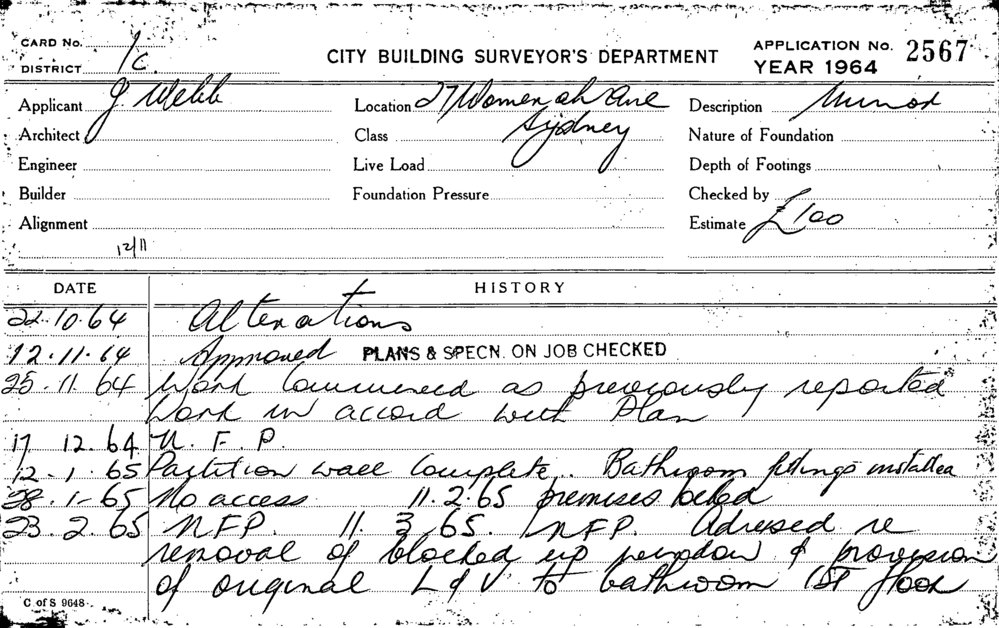 CARD No. 1c. CITY BUILDING SURVEYOR'S DEPARTMENT APPLICATION No. 2567
DISTRICT YEAR 1964
Applicant J Webb Location 27 Womerah Ave Description Minor
Architect Class Sydney Nature of Foundation
Engineer Live Load Depth of Footings
Builder Foundation Pressure Checked by
Alignment Estimate £100
12/11
DATE HISTORY
22.10.64 Alterations
12.11.64 Approved PLANS & SPECN. ON JOB CHECKED
25.11.64 Work Commenced as previously reported
Work in accord with Plan
17 12.64 N.F.P.
12.1.65 Partition wall Complete.. Bathroom fittings installed
28.1-65 No access 11.2.65 premises locked
23.2.65 NFP. 11 3 65. NFP. Adresed re
removal of blocked up window & provision
of original L & V to bathroom 1st floor
C of S 9648